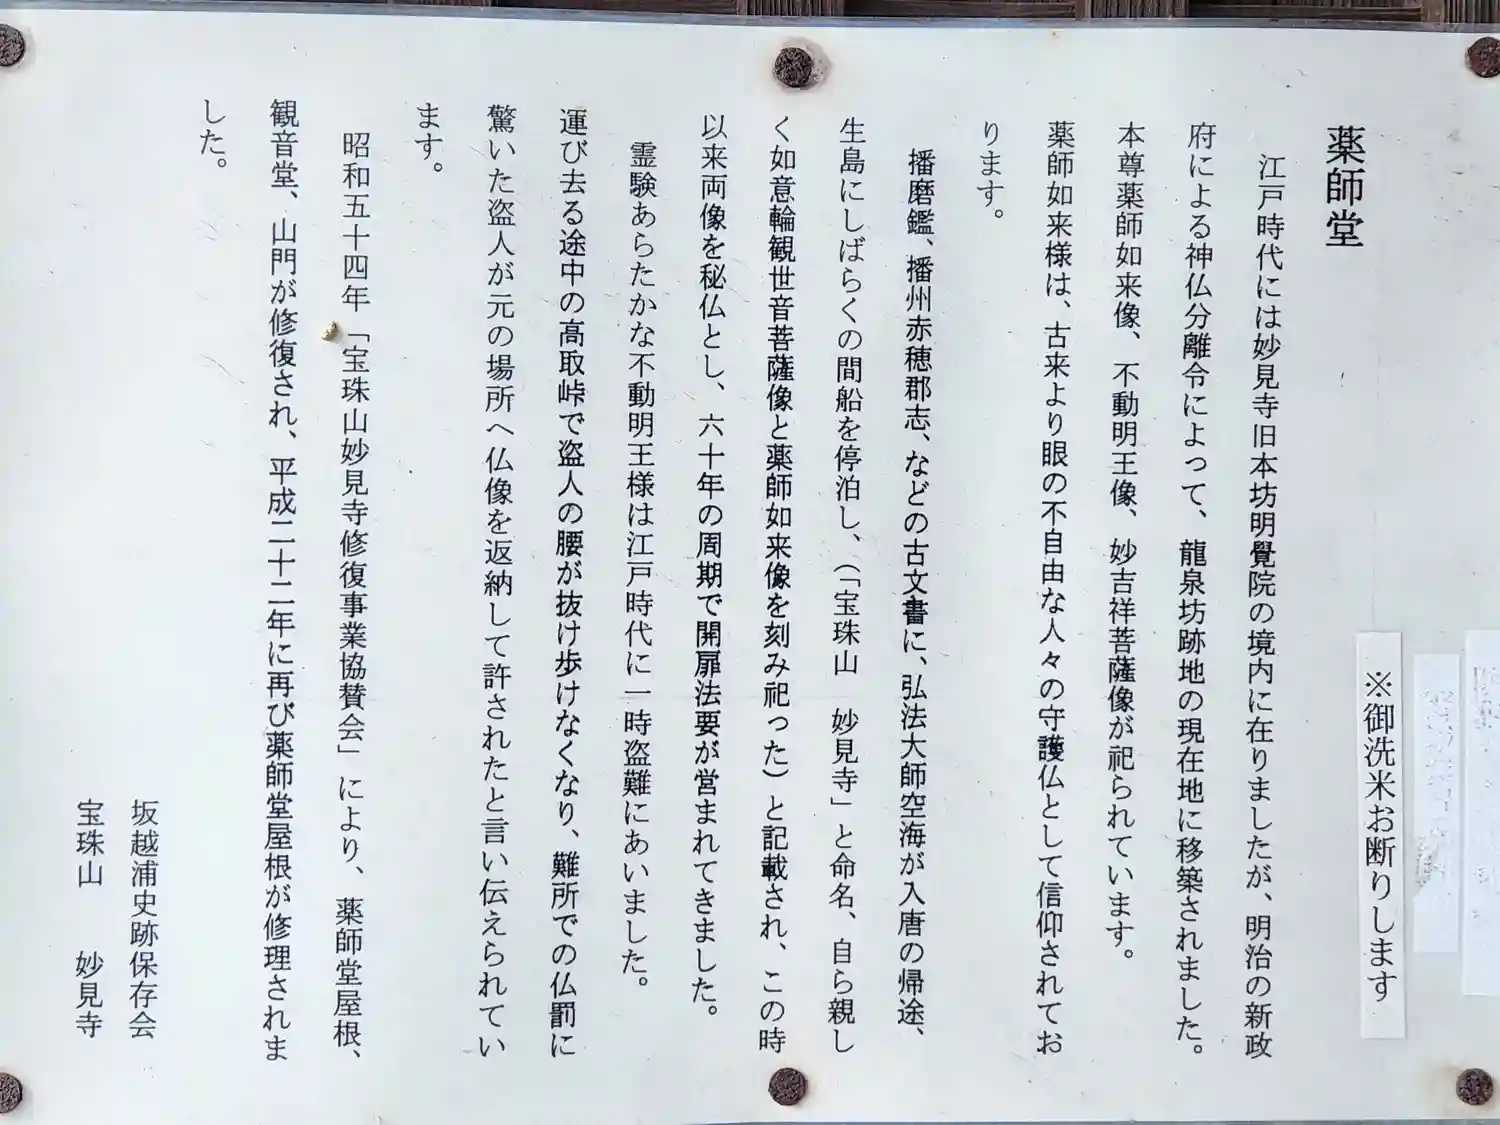 ※御洗米お断りします
薬師堂
江戸時代には妙見寺旧本坊明覺院の境内に在りましたが、明治の新政
府による神仏分離令によって、龍泉坊跡地の現在地に移築されました。
本尊薬師如来像、不動明王像、妙吉祥菩薩像が祀られています。
薬師如来様は、古来より眼の不自由な人々の守護仏として信仰されてお
ります。
播磨鑑、播州赤穂郡志、などの古文書に、弘法大師空海が入唐の帰途、
生島にしばらくの間船を停泊し、（「宝珠山　妙見寺」と命名、自ら親し
く如意輪観世音菩薩像と薬師如来像を刻み祀った）と記載され、この時
以来両像を秘仏とし、六十年の周期で開扉法要が営まれてきました。
霊験あらたかな不動明王様は江戸時代に一時盗難にあいました。
運び去る途中の高取峠で盗人の腰が抜け歩けなくなり、難所での仏罰に
驚いた盗人が元の場所へ仏像を返納して許されたと言い伝えられてい
ます。
昭和五十四年「宝珠山妙見寺修復事業協賛会」により、薬師堂屋根、
観音堂、山門が修復され、平成二十二年に再び薬師堂屋根が修理されま
した。
坂越浦史跡保存会
宝珠山　妙見寺